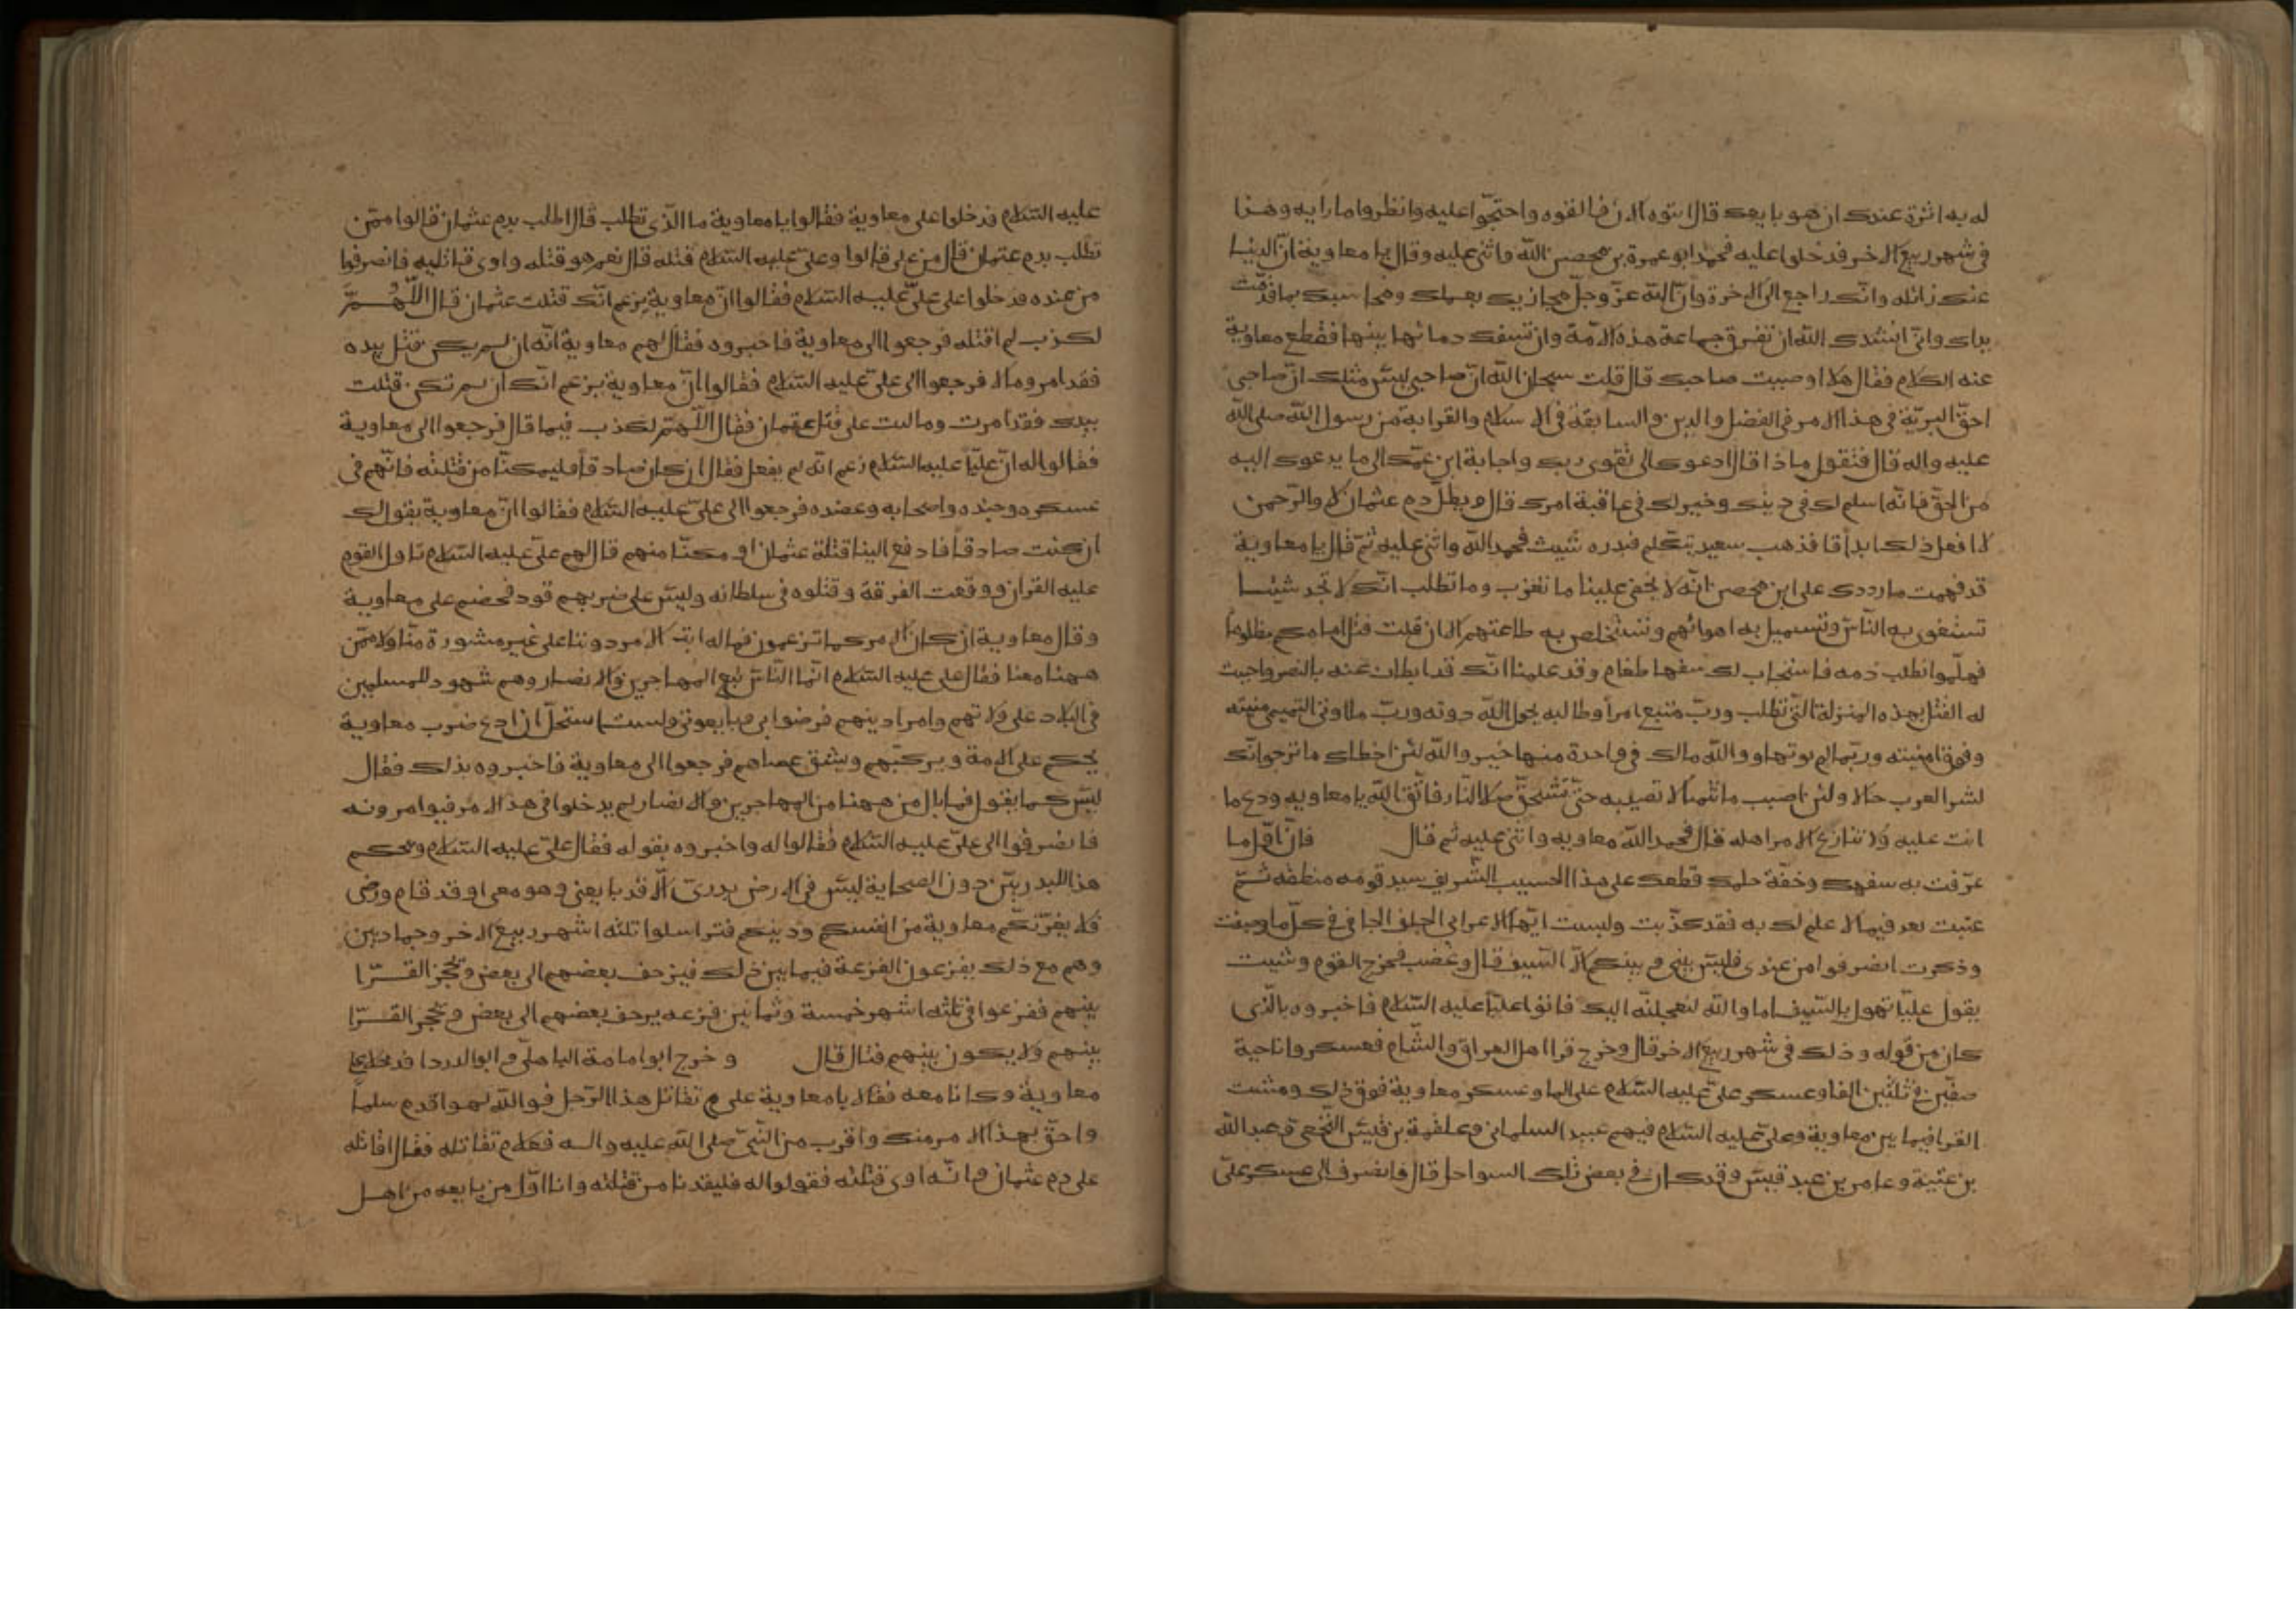 له به اثرة عندك ان هو بايعك قال ايتوه الان فالقوه واحتجّوا عليه وانظروا ما رايه وهذا
فى شهر ربيع الاخر فدخلوا عليه فحمد ابو عمرة بن محصن الله واثنى عليه وقال يا معاوية انّ الدنيا
عنك زائله وانّك راجع الى الاخرة وانّ الله عزّ وجلّ مجازيك بعملك ومحاسبك بما قدّمت
يداك وانّى انشدك الله ان تفرق جماعة هذه الامّة وان تسفك دمائها بينها فقطع معاوية
عنه الكلام فقال هلا اوصيت صاحبك قال قلت سبحان الله انّ صاحبى ليس مثلك انّ صاحبى
احقّ البريّة فى هذا الامر فى الفضل والدين والسابقة فى الاسلام والقرابة من رسول الله صلى الله
عليه واله قال فتقول ماذا قال ادعوك الى تقوى ربك واجابة ابن عمّك الى ما يدعوك اليه
من الحقّ فانّه اسلم لك فى دينك وخير لك فى عاقبة امرك قال ويطلّ دم عثمان لا والرّحمن
لا افعل ذلك ابداً قا فذهب سعيد يتكلم فبدره شبث فحمد الله واثنى عليه ثمّ قال يا معاوية
قد فهمت ما رددت على ابن محصن انّه لا يخفى علينا ما تغزب وما تطلب انّك لا تجد شيئا
تستغوى به النّاس وتستميل به اهوائهم وتستخلص به طاعتهم الا ان قلت قتل امامكم مظلوما
فهلّموا نطلب دمه فاستجاب لك سفها طغام وقد علمنا انّك قد ابطات عنه بالنصر واحببت
له القتل بهذه المنزلة الّتى تطلب وربّ متبع امراً وطالبه يحول الله دونه وربّ ما اوتى المتمنى منيته
وفوق امنيته وربّما لم يوتها ووالله مالك فى واحدة منها خير والله لئن اخطاك ما ترجو انّك
لشر العرب حالا ولئن اصبت ما تتمنّاه لا تصيبه حتّى تستحقّ صلا النّار فاتّق الله يا معاويه ودع ما
انت عليه ولا تنازع الامر اهله قال فحمد الله معاويه واثنى عليه ثم قال فانّ اوّل ما
عرّفت به سفهك وخفّة حلمك قطعك على هذا الحسيب الشّريف سيد قومه منطقه ثمّ
عتبت بعد فيما لا علم لك به فقد كذّبت ولبست ايّها الاعرابى الجلف الجافى فى كلّ ما وصفت
وذكرت انصرفوا من عندى فليس بينى وبينكم الّا السّيف قال وغضب فخرج القوم وشبث
يقول علينا تهول بالسّيف اما والله لنعجلنّه اليك فاتوا عليّاً عليه السّلام فاخبروه بالّذى
كان من قوله وذلك فى شهر ربيع الاخر قال وخرج قرا اهل العراق والشّام فعسكروا ناحية
صفّين فى ثلثين الفا وعسكر علىّ عليه السّلام على الما وعسكر معاوية فوق ذلك ومشت
القرا فيما بين معاوية وعلىّ عليه السّلام فيهم عبيد السلمانى وعلقمة بن قيس النّخعى وعبد الله
بن عتبة وعامر بن عبد قيس وقد كان فى بعض تلك السواحل قال فانصرف الى عسكر علىّ
عليه السّلام فدخلوا على معاوية فقالوا يا معاوية ما الّذى تطلب قال اطلب بدم عثمان قالوا ممّن
تطلب بدم عثمان قال من على قالوا وعلىّ عليه السّلام قتله قال نعم هو قتله واوى قاتليه فانصرفوا
من عنده فدخلوا على علىّ عليه السّلام فقالوا انّ معاوية يزعم انّك قتلت عثمان قال اللّهمّ
لكذب لم اقتله فرجعوا الى معاوية فاخبروه فقال لهم معاوية انّه ان لم يكن قتل بيده
فقد امر ومالا فرجعوا الى علىّ عليه السّلام فقالوا انّ معاوية يزعم انّك ان لم تكن قتلت
بيدك فقد امرت وماليت على قتل عثمان فقال اللّهمّ لكذب فيما قال فرجعوا الى معاوية
فقالوا له انّ عليّاً عليه السّلام زعم انّه لم يفعل فقال ان كان صادقاً فليمكنّا من قتلته فانّهم فى
عسكره وجنده واصحابه وعضده فرجعوا الى علىّ عليه السّلام فقالوا انّ معاوية يقول لك
ان كنت صادقاً فادفع الينا قتلة عثمان او مكنّا منهم قال لهم علىّ عليه السّلام تاول القوم
عليه القران ووقعت الفرقة وقتلوه فى سلطانه وليس على ضربهم قود فخصم على معاوية
وقال معاوية ان كان الامر كما تزعمون فماله ابتز الامر دوننا على غير مشورة منّا ولا ممّن
ههنا معنا فقال على عليه السّلام انّما النّاس تبع المهاجرين والانصار وهم شهود للمسلمين
فى البلاد على ولاتهم وامرا دينهم فرضوا بى وبايعونى ولست استحلّ ان ادع ضرب معاوية
يحكم على الامة ويركبهم ويشق عصاهم فرجعوا الى معاوية فاخبروه بذلك فقال
ليس كما يقول فما بال من ههنا من المهاجرين والانصار لم يدخلوا فى هذا الامر فيوامرونه
فانصرفوا الى علىّ عليه السّلام فقالوا له واخبروه بقوله فقال علىّ عليه السّلام ويحكم
هذا للبدريّين دون الصحابة ليس فى الارض بدرىّ الّا قد بايعنى وهو معى او قد قام ورضى
فلا يغرّنّكم معاوية من انفسكم ودينكم فتراسلوا ثلثه اشهر ربيع الاخر وجمادين
وهم مع ذلك يفزعون الفزعة فيما بين ذلك فيزحف بعضهم الى بعض وتحجز القرّا
بينهم ففزعوا فى ثلثه اشهر خمسة وثمانين فزعه يزحف بعضهم الى بعض وتحجز القرّا
بينهم ولا يكون بينهم قتال قال وخرج ابو امامة الباهلىّ وابو الدردا فدخلا على
معاوية وكانا معه فقالا يا معاوية على م تقاتل هذا الرّجل فوالله لهو اقدم سلماً
واحقّ بهذا الامر منك واقرب من النّبىّ صلى الله عليه واله فعلام تقاتله فقال اقاتله
على دم عثمان وانّه اوى قتلته فقولوا له فليقدنا من قتلته وانا اوّل من بايعه من اهل